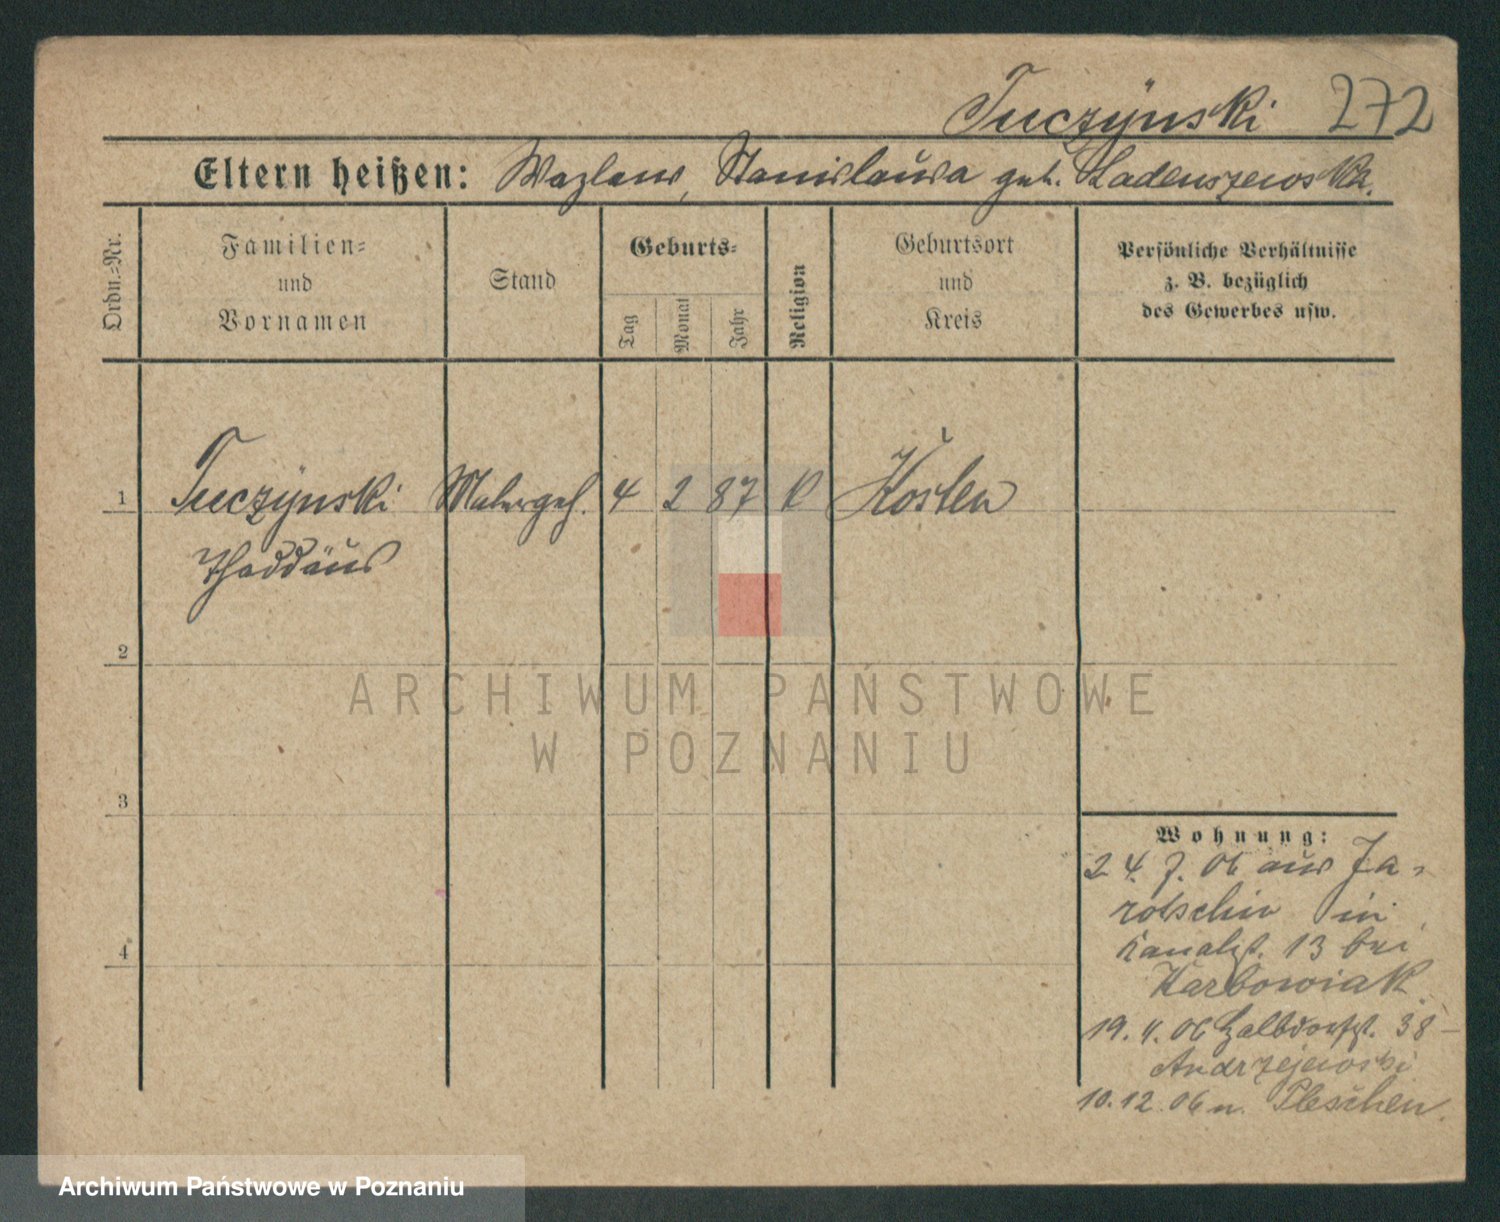 Tuczÿnski 272
Eltern heißen: Wazlaw, Stanislawa geb. Ladenszewska.
Ordn.=Nr.
Familien=
und
Vornamen
Stand
Geburts=
Tag
Monat
Jahr
Religion
Geburtsort
und
Kreis
Persönliche Verhältnisse
z. B. bezüglich
des Gewerbes usw.
1 Tuczÿnski Malergeh. 4 2 87 K Kosten
Thaddäus
2
ARCHIWUM PAŃSTWOWE
W POZNANIU
3
Wohnung:
24. 7. 06 aus Ja-
rotschin in
Kanalst. 13 bei
Karbowiak
19. 06 Halbdorfst. 38 –
Andrzejewski
10.12.06 n. Pleschen.
4
Archiwum Państwowe w Poznaniu